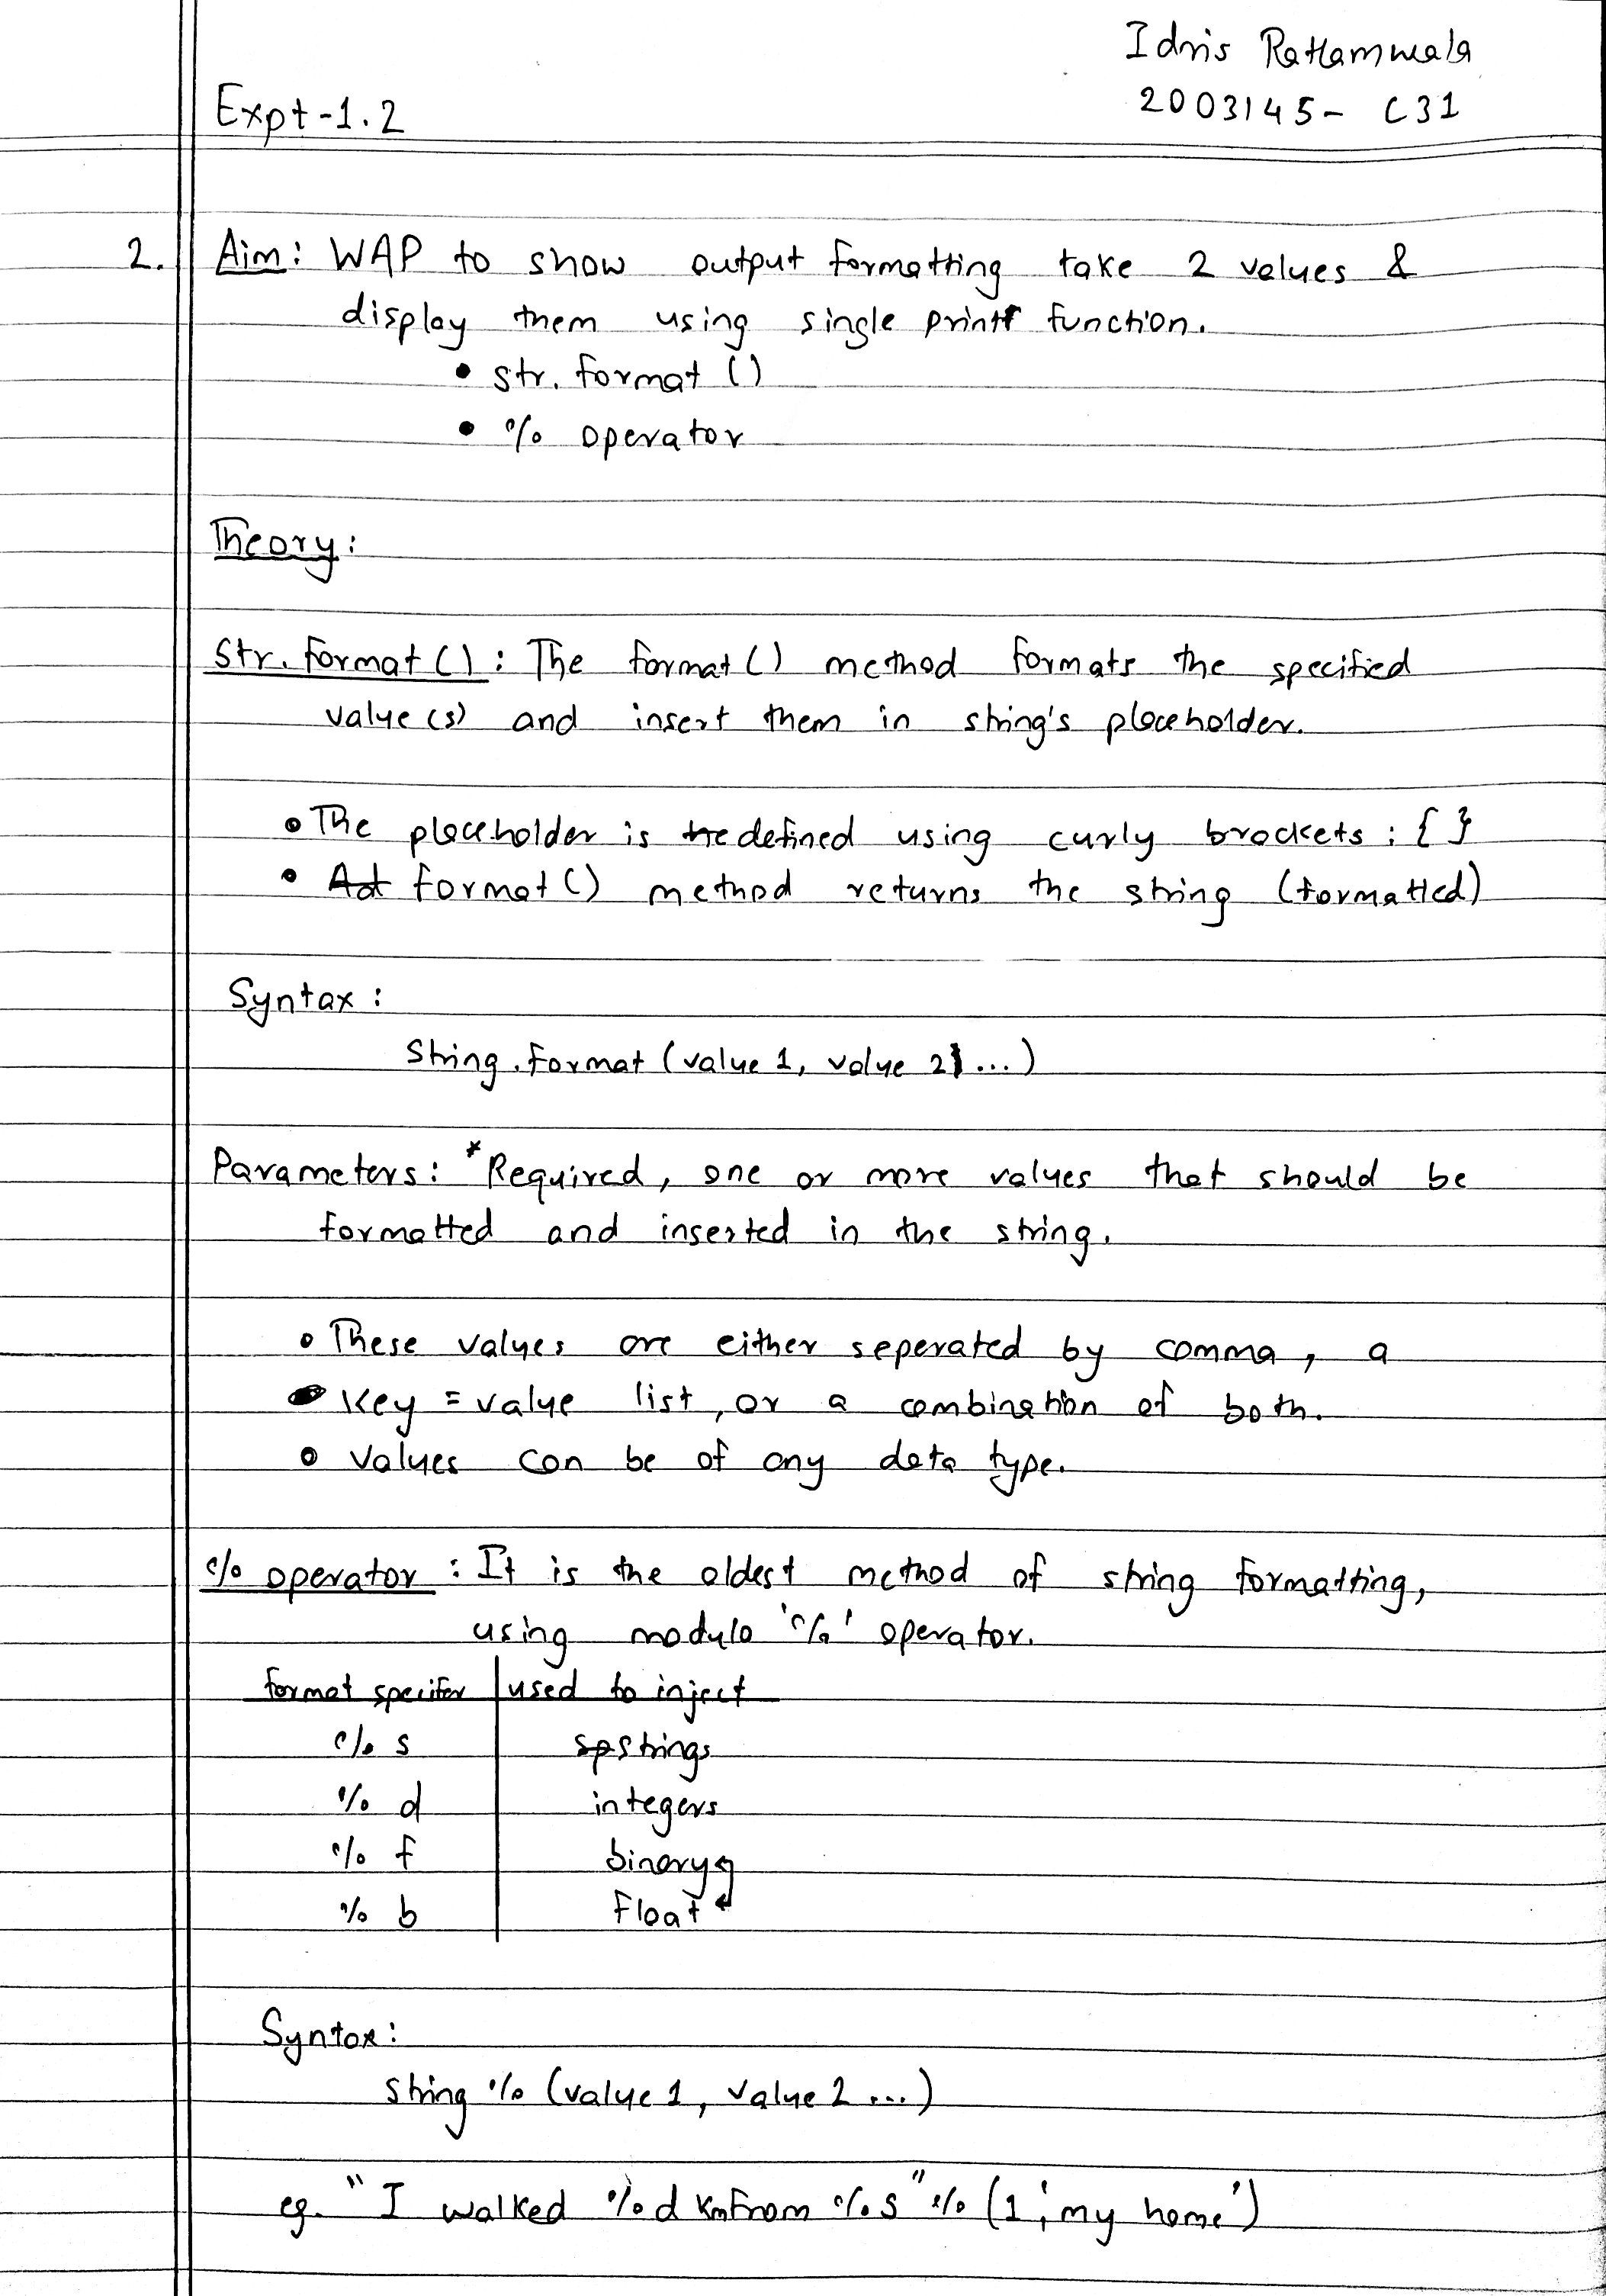 Idris Ratlamwala
2003145- C31
Expt-1.2
2. Aim: WAP to show output formatting take 2 values &
display them using single print function.
• str. format ()
• % operator
Theory:
Str. format () : The format () method formats the specified
value(s) and insert them in string's placeholder.
• The placeholder is defined using curly brackets : { }
• format () method returns the string (formatted)
Syntax :
String.format (value 1, value 2, ...)
Parameters: *Required, one or more values that should be
formatted and inserted in the string.
• These values are either seperated by comma, a
key = value list, or a combination of both.
• Values can be of any data type.
% operator : It is the oldest method of string formatting,
using modulo '%' operator.
format specifer | used to inject
% s strings
% d integers
% f binary
% b Float
Syntax:
String % (value 1, value 2 ...)
eg. "I walked %d Km from %s" % (1, 'my home')